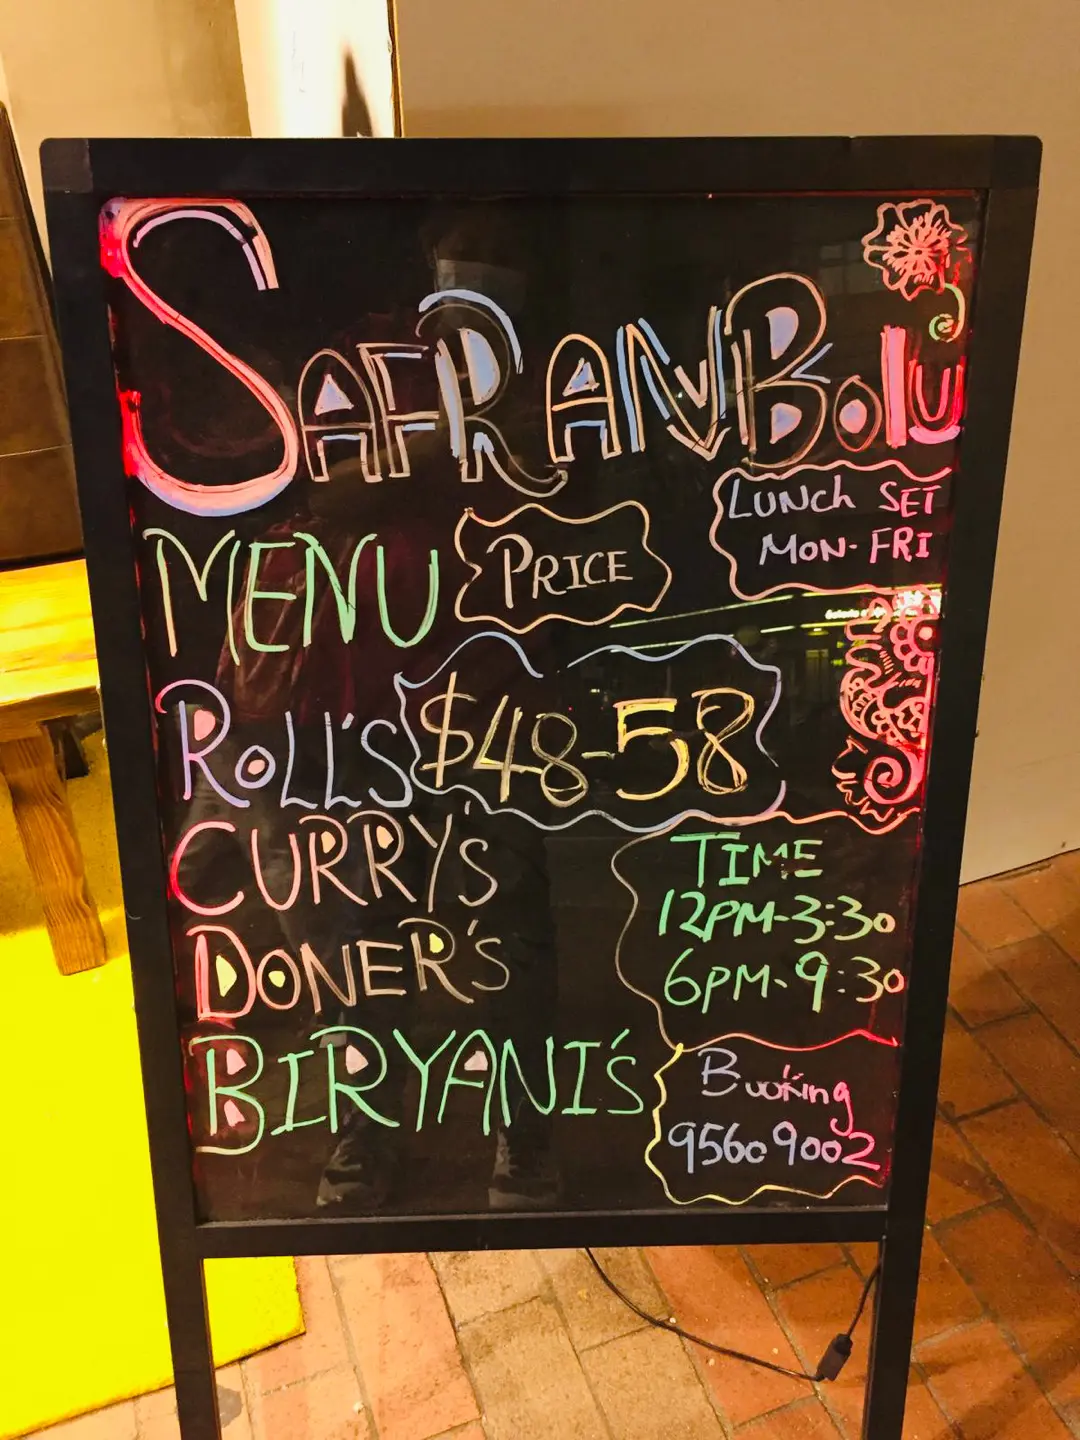 SAFRANBolu
LUNCh SET
MON-FRI
MENU
PRICE
ROLL'S
$48-58
CURRY'S
DONER'S
BIRYANI'S
TIME
12PM-3:30
6PM-9:30
Booking
9560 9002